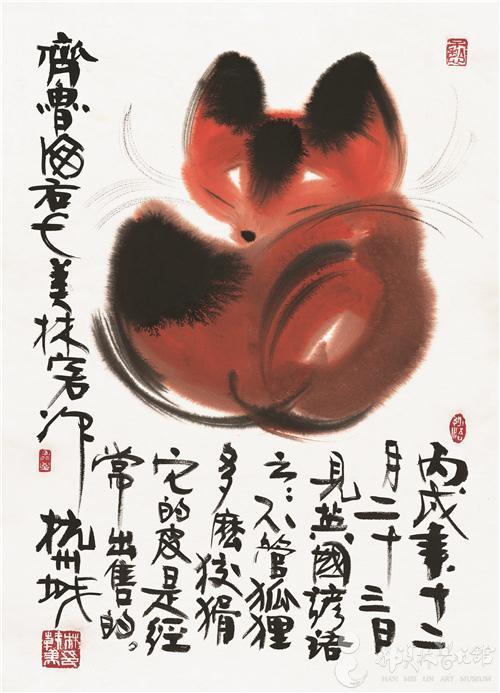 丙戌年十二
月二十三日
見英國諺語
云：不管狐狸
多麼狡猾
它的皮是經
常出售的。
齊魯海右美林客作
杭州城
韩美林艺术馆
HAN MEI LIN ART MUSEUM